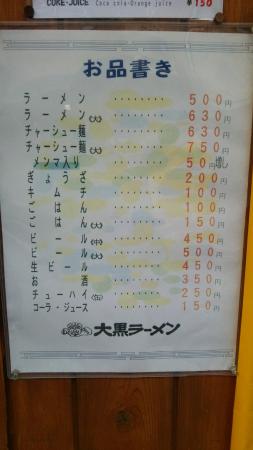 COKE-JUICE Coca cola-Orange juice ¥150
お品書き
ラーメン ‥‥‥‥ 500円
ラーメン(大) ‥‥‥‥ 630円
チャーシュー麺 ‥‥‥‥ 630円
チャーシュー麺(大) ‥‥‥‥ 750円
メンマ入り ‥‥‥‥ 50円増し
ぎょうざ ‥‥‥‥ 200円
キムチ ‥‥‥‥ 100円
ごはん ‥‥‥‥ 100円
ごはん(大) ‥‥‥‥ 150円
ビール(中) ‥‥‥‥ 450円
ビール(大) ‥‥‥‥ 500円
生ビール ‥‥‥‥ 450円
お酒 ‥‥‥‥ 350円
チューハイ(缶) ‥‥‥‥ 250円
コーラ・ジュース ‥‥‥‥ 150円
大黒ラーメン